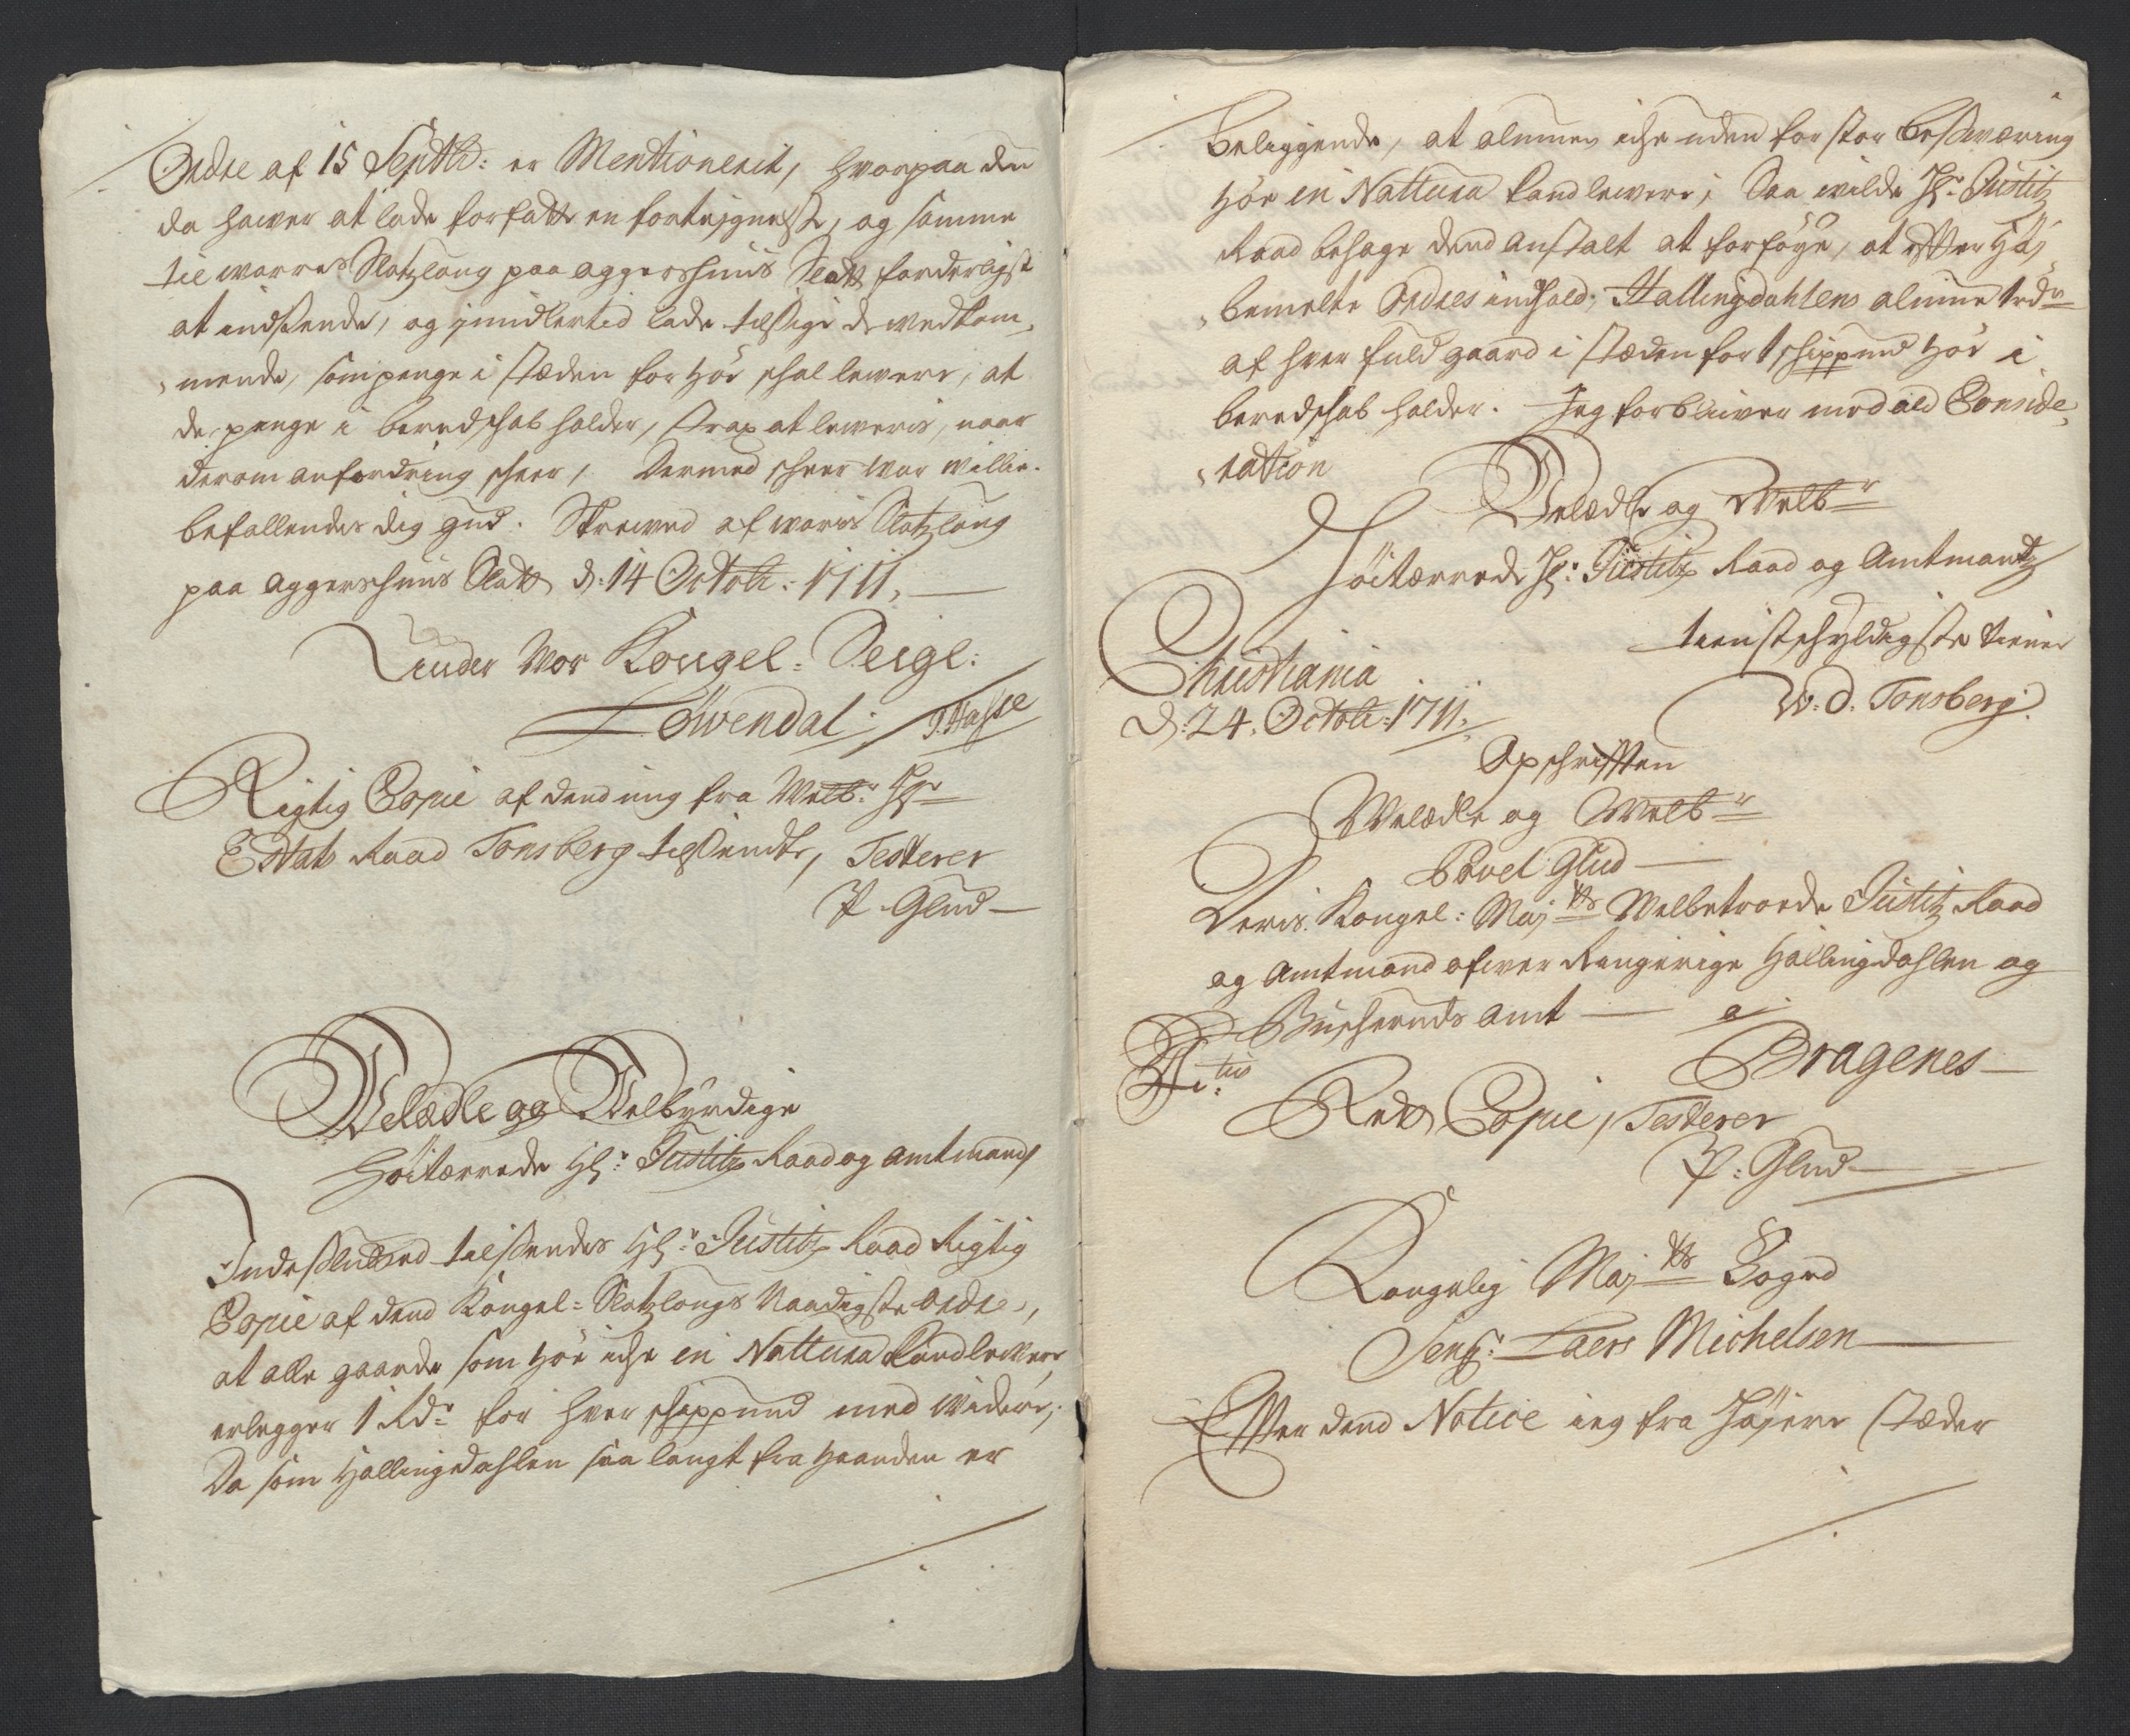 Ordre af 15 Septbr: er Mentionerit, hvorpaa du
da hawer at lade forfatte en fortegnelse, og samme
til worres Slotzlong paa Aggershuus Slott forderligst
at indsende, og jmidlertid lade tilsige de wedkom-
mende, som penge i stæden for Höe skal lewere, at
de penge i beredskab holder, strax at leweris, naar
derom anfordring skeer, Dermed skeer wor willie.
befallendes dig gud. Skrewed af woris Slotzlong
paa Aggershuus Slott d: 14 Octobr: 1711,
under Wor Kongel: Seigl:
Löwendal: / J: Hasse
Rigtig Copie af dend mig fra Welb:r Hr
Ettats Raad Tonsberg tilsendte, Testerer
P. Glud
Welædle og Welbyrdige
Höitærrede Hr: Justitz Raad og Amtmand
Indeslutted tilsendes Hr: Justitz Raad Rigtig
Copie af dend Kongel: Slotzlongs Naadigste Ordre,
at alle gaarde som Höe iche in Nattura Kand lewere,
erlegger 1 Rdr for hver skippund med widere,
Da som Hallingdahlen saa langt fra Haanden er
beliggende, at almuen iche uden for stor beswæring
Höe in Nattura Kand lewere, Saa wilde Hr: Justitz
Raad behage dend anstalt at forföye, at effter Höj-
bemelte Ordres indhold, Hallingdahlens almue 1 rdr
af hver fuld gaard i stæden for 1 skippund Höe i
beredskab holder. Jeg forbliwer med all Conside-
ration
Welædle og Welbr
Höitærrede Hr: Justitz Raad og Amtmands
tienstskyldigste tiener
W. D. Tonsberg.
Christiania
d: 24. Octobr: 1711,
Opskrifften
Welædle og Welbr
Powel Glud
Deris Kongel: Majts Welbetroede Justitz Raad
og Amtmand ofwer Ringerige Hallingdahlen og
Buskeruds Amt a
Bragenes
Rett Copie, Testerer
P: Glud
Kongelig Majts Foged
Sengr: Laers Michelsen
Effter dend Notice ieg fra Höjere stæder